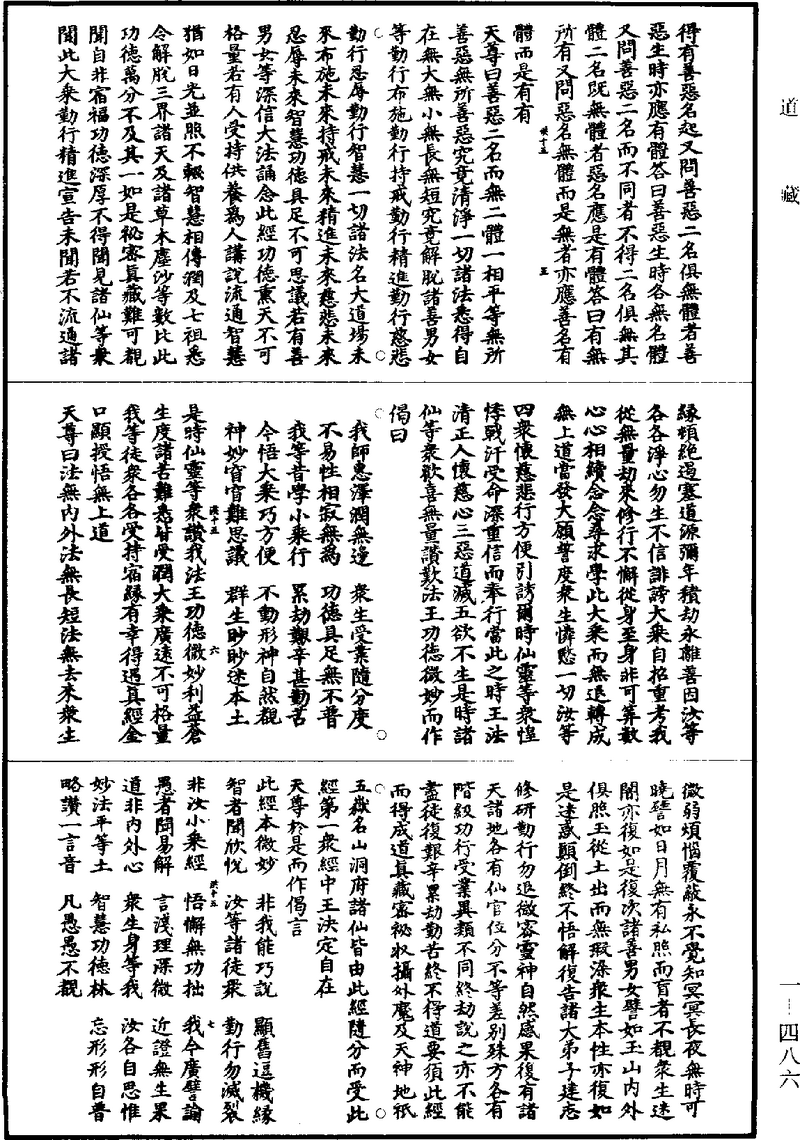 道藏
得有善惡名起又問善惡二名俱無體者善
惡生時亦應有體答曰善惡生時各無名體
又問善惡二名而不同者不得二名俱無其
體二名既無體者惡名應是有體答曰有無
所有又問惡名無體而是無者亦應善名有
體而是有有
天尊曰善惡二名而無二體一相平等無所
善惡無所善惡究竟清淨一切諸法悉得自
在無大無小無長無短究竟解脫諸善男女
等勤行布施勤行持戒勤行精進勤行慈悲
勤行忍辱勤行智慧一切諸法名大道場未
來布施未來持戒未來精進未來慈悲未來
忍辱未來智慧功德具足不可思議若有善
男女等深信大法誦念此經功德熏天不可
格量若有人受持供養為人講說流通智慧
猶如日光並照不輟智慧相傳潤及七祖悉
令解脫三界諸天及諸草木塵沙等數比此
功德萬分不及其一如是祕密真藏難可觀
聞自非宿福功德深厚不得聞見諸仙等衆
聞此大衆勤行精進宣告未聞若不流通諸
緣頓絕遏塞道源彌年積劫永離善因汝等
各各淨心勿生不信誹謗大衆自招重考我
從無量劫來修行不懈從身至身非可算數
心心相續念念尋求學此大乘而無退轉成
無上道當發大願誓度衆生憐愍一切汝等
四衆懷慈悲行方便引誘爾時仙靈等衆惶
悸戰汗受命深重信而奉行當此之時王法
清正人懷慈心三惡道滅五欲不生是時諸
仙等衆歡喜無量讚歎法王功德微妙而作
偈曰
我師惠澤潤無邊 衆生受業隨分度
不易性相寂無為 功德具足無不普
我等昔學小乘行 累劫艱辛甚勤苦
今悟大乘巧方便 不動形神自然觀
神妙寶官難思議 群生眇眇迷本土
是時仙靈等衆讚我法王功德微妙利益蒼
生度諸苦難悉皆受潤大衆廣遠不可格量
我等徒衆各各受持宿緣有幸得遇真經金
口顯授悟無上道
天尊曰法無內外法無長短法無去來衆生
微弱煩惱覆蔽永不覺知冥冥長夜無時可
曉譬如日月無有私照而盲者不覩衆生迷
闇亦復如是復次諸善男女譬如玉山內外
俱照玉從土出而無瑕滓衆生本性亦復如
是迷惑顛倒終不悟解復告諸大弟子達志
修研勤行勿退微密靈神自然感果復有諸
天諸地各有仙官位分不等差別殊方各有
階級功行受業異類不同終劫說之亦不能
盡徒復艱辛累劫勤苦終不得道要須此經
而得成道真藏密祕收攝外魔及天神地祇
五嶽名山洞府諸仙皆由此經隨分而受此
經第一衆經中王決定自在
天尊於是而作偈言
此經本微妙 非我能巧說 顯舊逗機緣
智者聞欣悅 汝等諸徒衆 勤行勿滅裂
非汝小乘經 悟懈無功拙 我今廣譬論
愚者聞易解 言淺理深微 近證無生果
道非內外心 衆生身等我 汝各自思惟
妙法平等土 智慧功德林 忘形形自普
略讚一言音 凡愚愚不覩
一-四八六